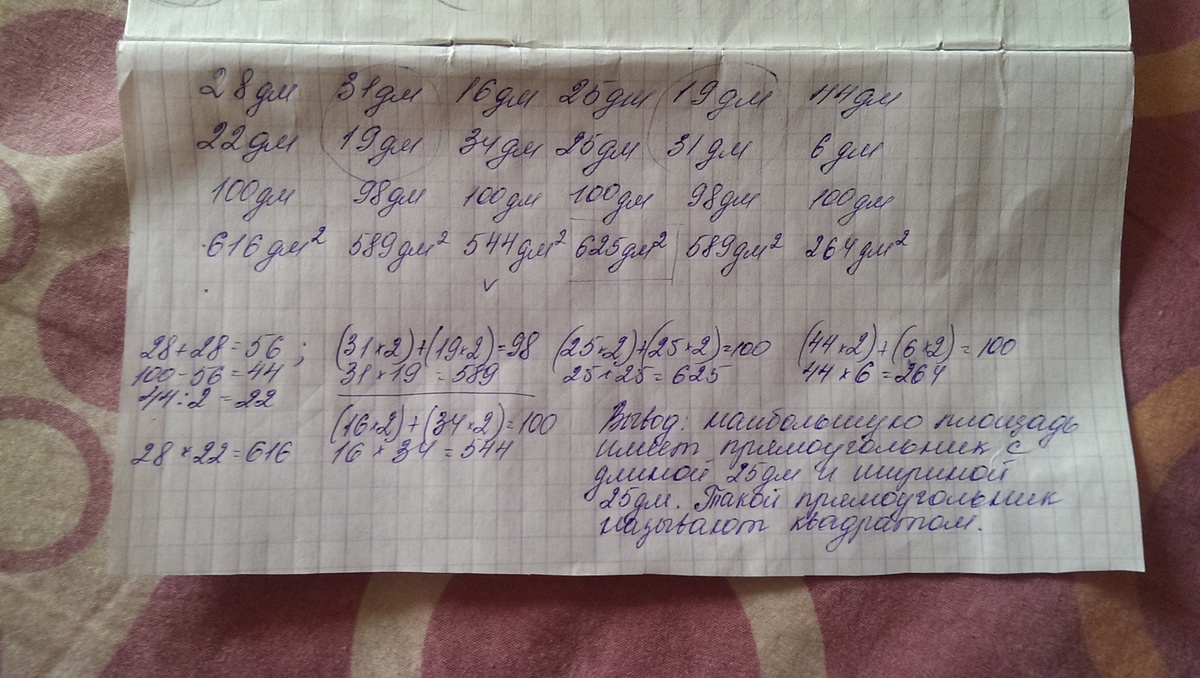 28дм 31дм 16дм 25дм 19дм 44дм
22дм 19дм 34дм 25дм 31дм 6дм
100дм 98дм 100дм 100дм 98дм 100дм
616дм² 589дм² 544дм² 625дм² 589дм² 264дм²
28+28=56;
100-56=44
44:2=22
28×22=616
(31×2)+(19×2)=98
31×19=589
(16×2)+(34×2)=100
16×34=544
(25×2)+(25×2)=100
25×25=625
(44×2)+(6×2)=100
44×6=264
Вывод: наибольшую площадь
имеет прямоугольник с
длиной 25дм и шириной
25дм. Такой прямоугольник
называют квадратом.